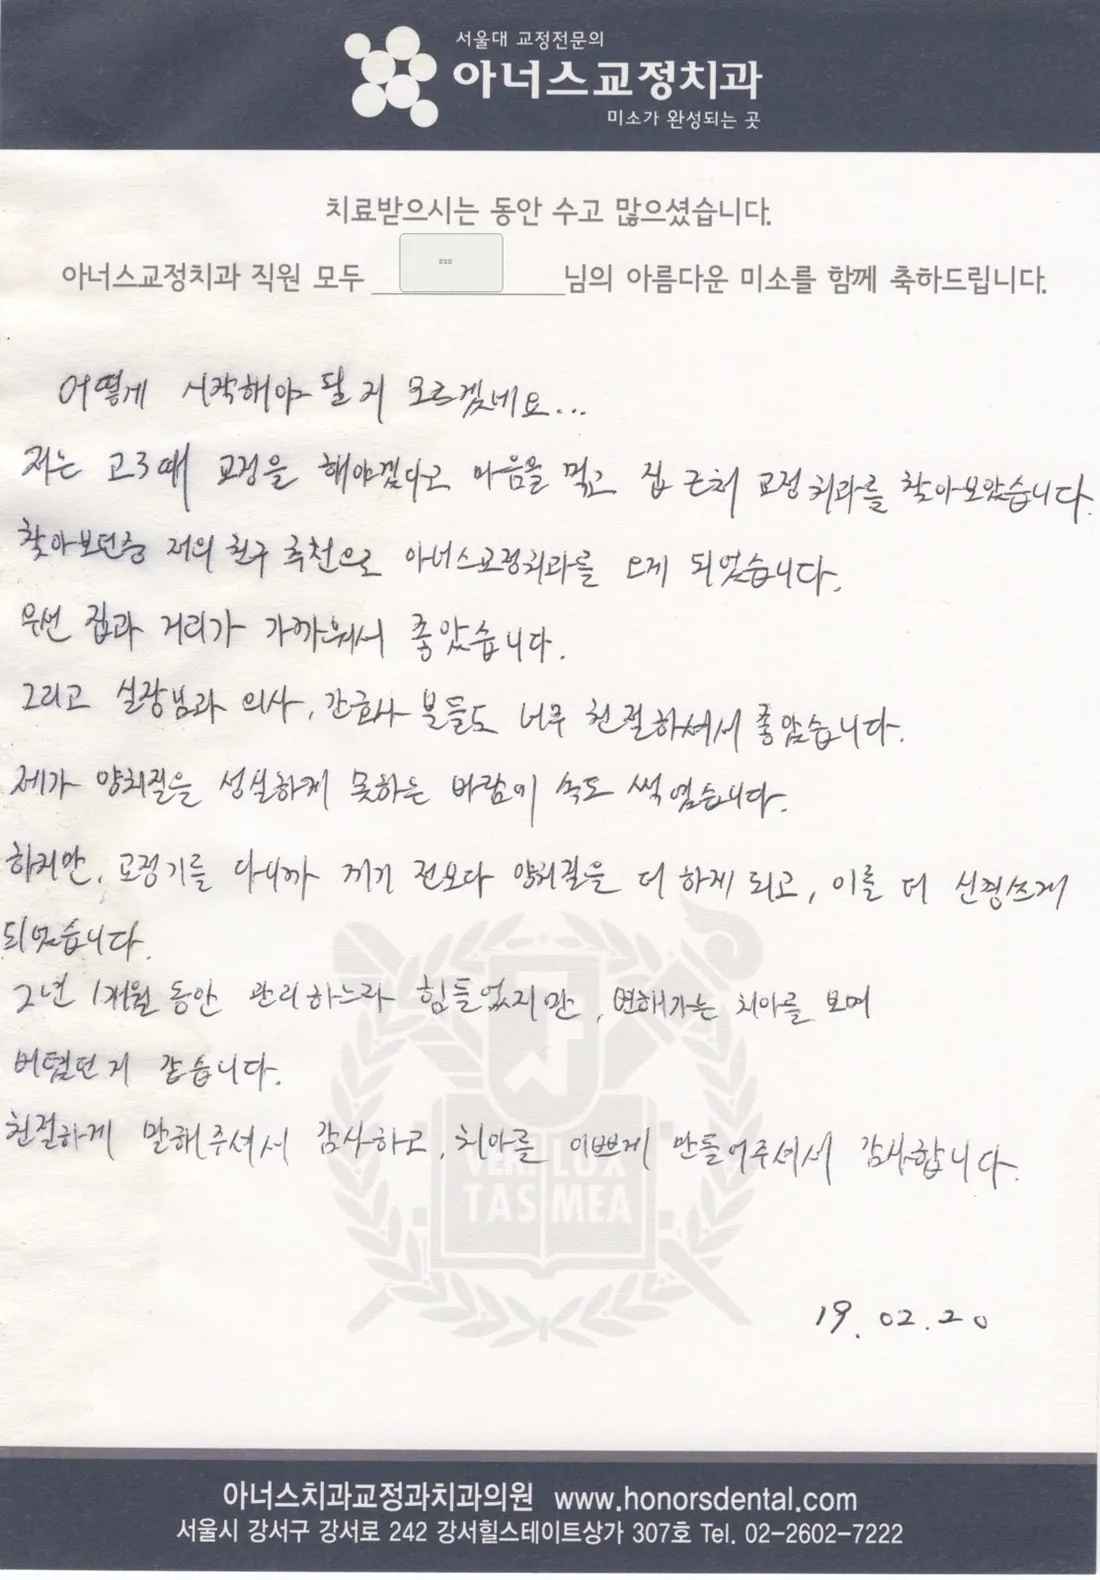 서울대 교정전문의
아너스교정치과
미소가 완성되는 곳
치료받으시는 동안 수고 많으셨습니다.
아너스교정치과 직원 모두 님의 아름다운 미소를 함께 축하드립니다.
어떻게 시작해야 될 지 모르겠네요...
저는 고3때 교정을 해야겠다고 마음을 먹고 집 근처 교정치과를 찾아보았습니다.
찾아보던중 저의 친구 추천으로 아너스교정치과를 오게 되었습니다.
우선 집과 거리가 가까워서 좋았습니다.
그리고 실장님과 의사, 간호사 분들도 너무 친절하셔서 좋았습니다.
제가 양치질을 성실하게 못하는 바람이 속도 썩였습니다.
하지만, 교정기를 다니까 끼기 전보다 양치질을 더 하게 되고, 이를 더 신경쓰게
되었습니다.
2년 1개월 동안 관리하느라 힘들었지만, 변해가는 치아를 보며
버텼던 게 같습니다.
친절하게 말해주셔서 감사하고, 치아를 이쁘게 만들어주셔서 감사합니다.
VERI LUX
TAS MEA
19.02.20
아너스치과교정과치과의원 www.honorsdental.com
서울시 강서구 강서로 242 강서힐스테이트상가 307호 Tel. 02-2602-7222